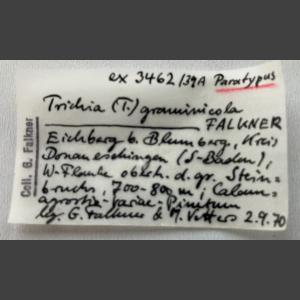 ex 3462/39A Paratypus
Trichia (T.) graminicola
FALKNER
Eichberg b. Blumberg, Kreis
Donaueschingen (S-Baden),
W-Flanke oberh. d. gr. Stein-
bruchs, 700-800 m, Calam-
agrostio-variae-Pinetum
lg. G. Falkner & M. Vetters 2.9.70
Coll. G. Falkner